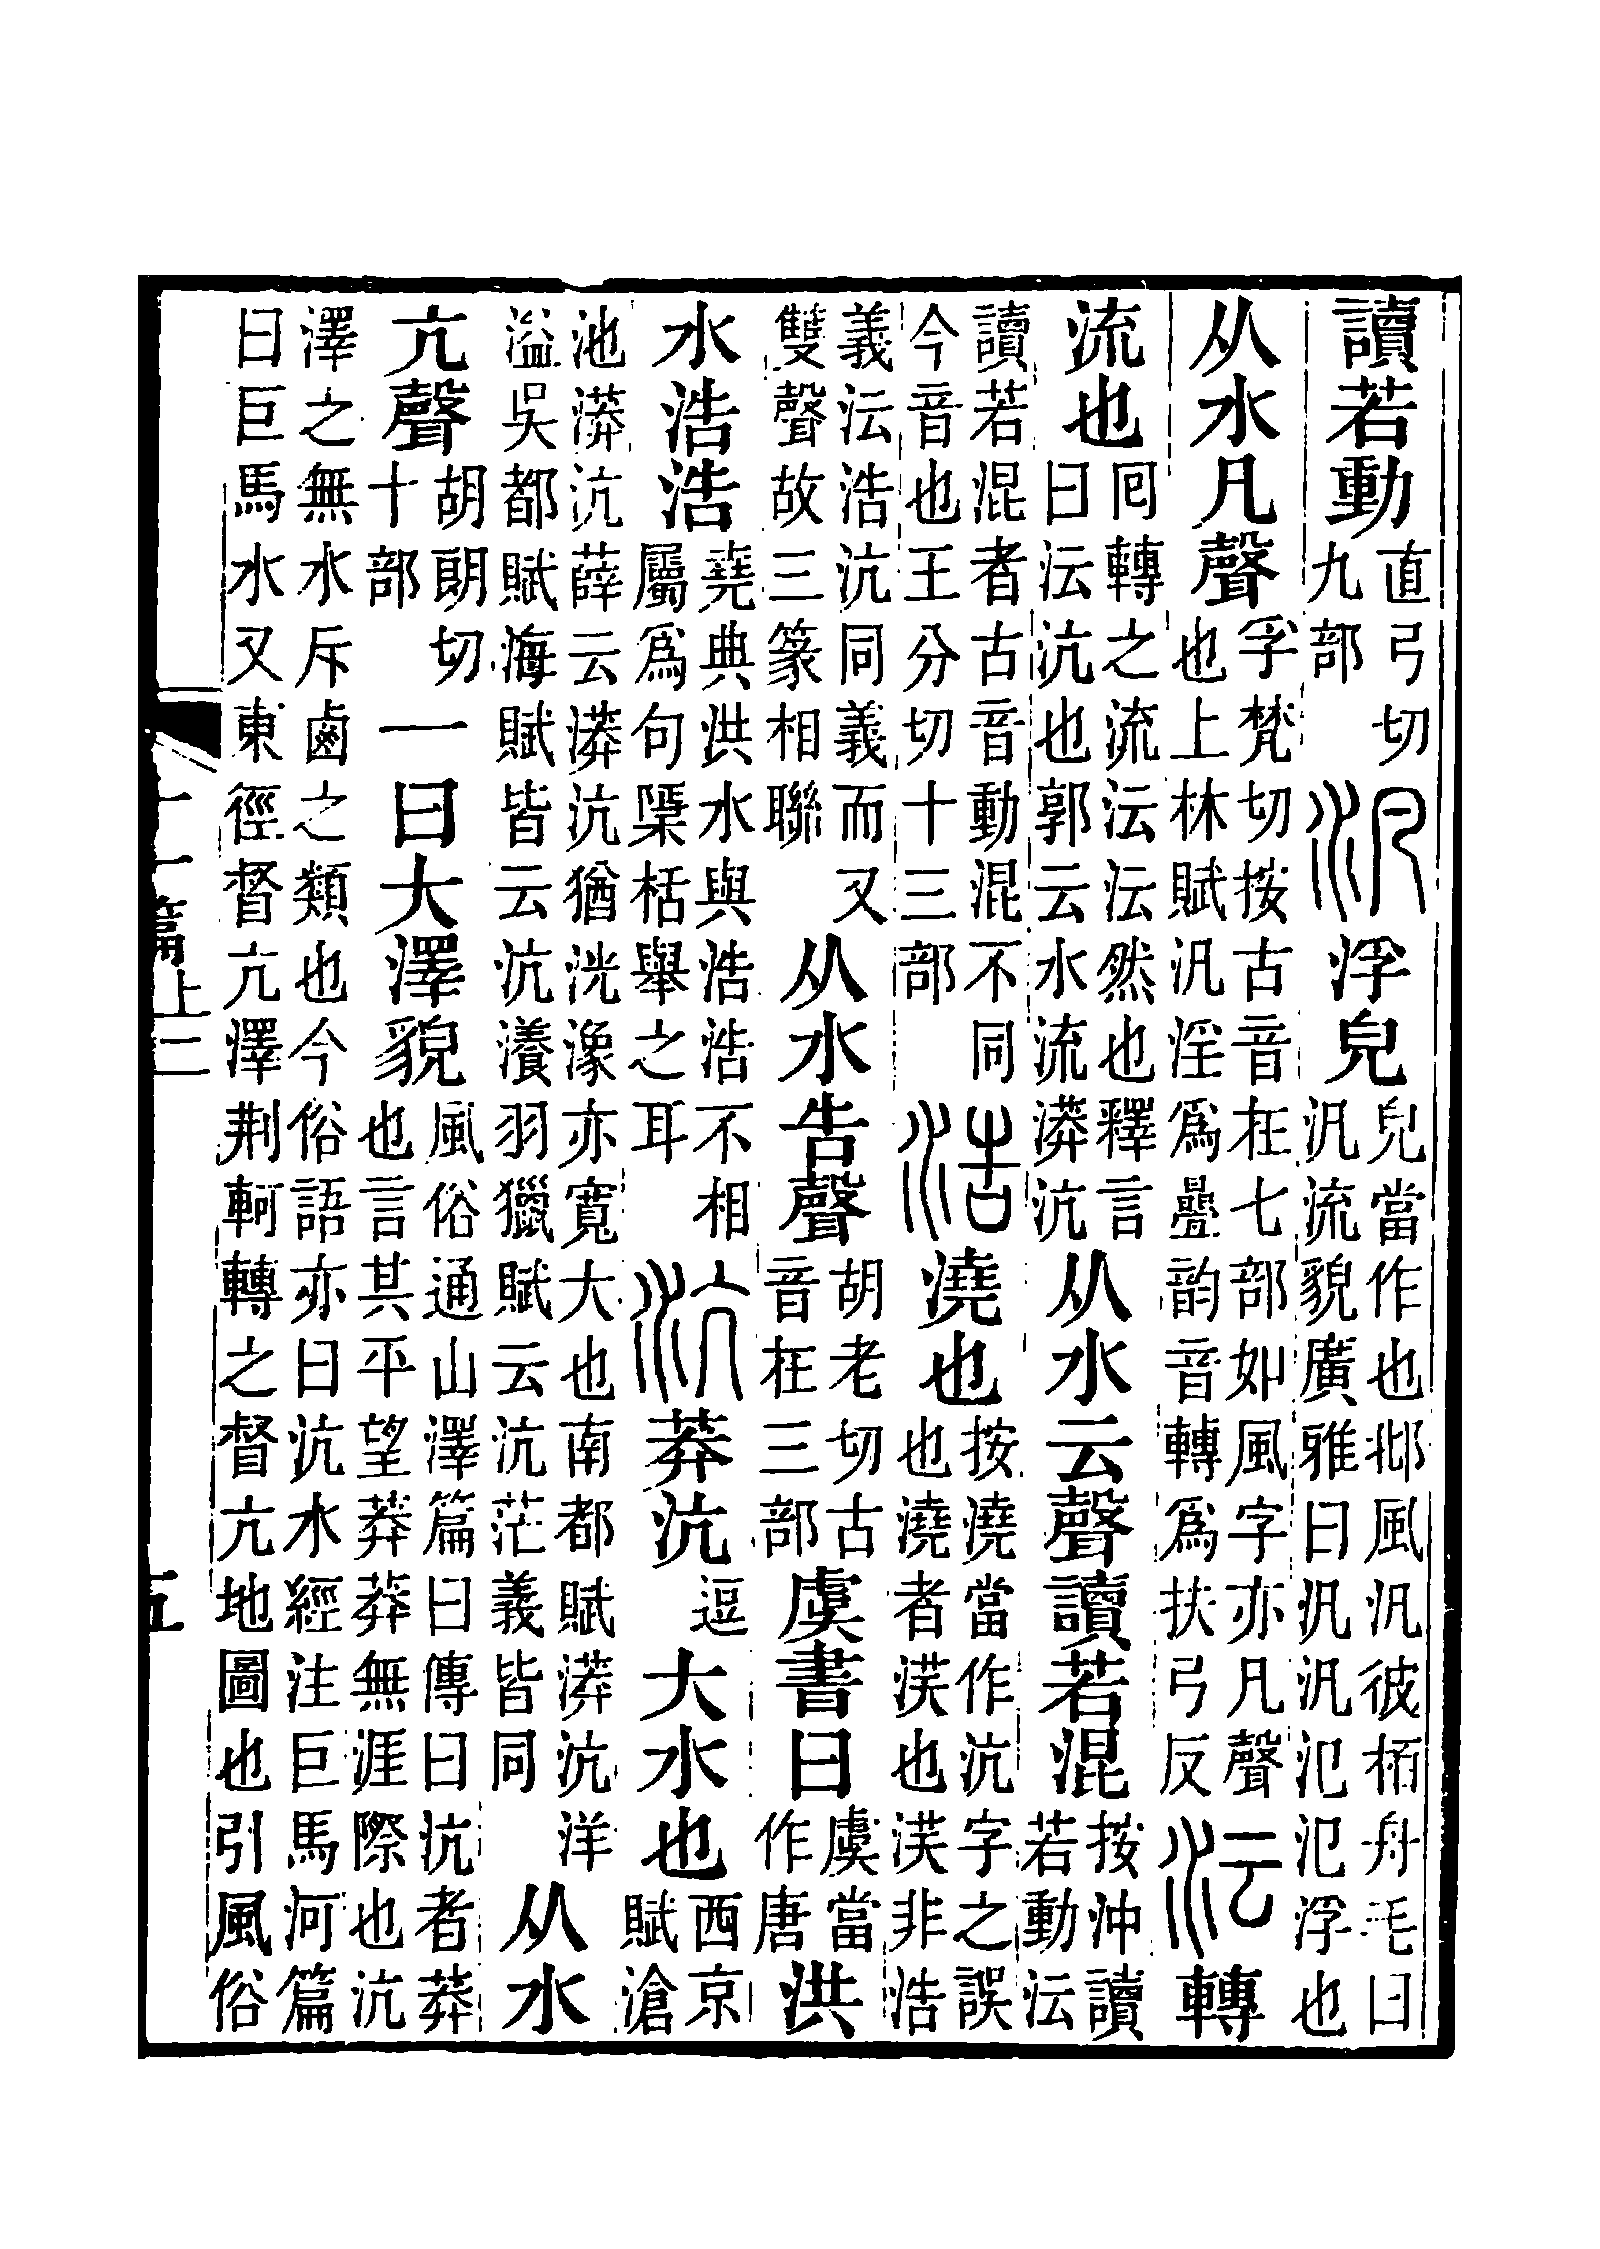 讀若動直弓切九部汎浮皃皃當作也邶風汎彼栢舟毛曰汎流貌廣雅曰汎汎氾氾浮也
从水凡聲孚梵切按古音在七部如風字亦凡聲也上林賦汎淫爲疊韵音轉爲扶弓反沄轉
流也囘轉之流沄沄然也釋言曰沄沆也郭云水流漭沆从水云聲讀若混按沖讀若動沄
讀若混者古音動混不同今音也王分切十三部浩澆也按澆當作沆字之誤也澆者㳸也㳸非浩
義沄浩沆同義而又雙聲故三篆相聯从水告聲胡老切古音在三部虞書曰虞當作唐洪
水浩浩堯典洪水與浩浩不相屬爲句檃栝舉之耳沆莽沆逗大水也西京賦滄
池漭沆薛云漭沆猶洸潒亦寬大也南都賦漭沆洋溢吳都賦海賦皆云沆瀁羽獵賦云沆茫義皆同从水
亢聲胡朗切十部一曰大澤貌風俗通山澤篇曰傳曰沆者莽也言其平望莽莽無涯際也沆
澤之無水斥鹵之類也今俗語亦曰沆水經注巨馬河篇曰巨馬水又東徑督亢澤荆軻轉之督亢地圖也引風俗
十一篇上二 五